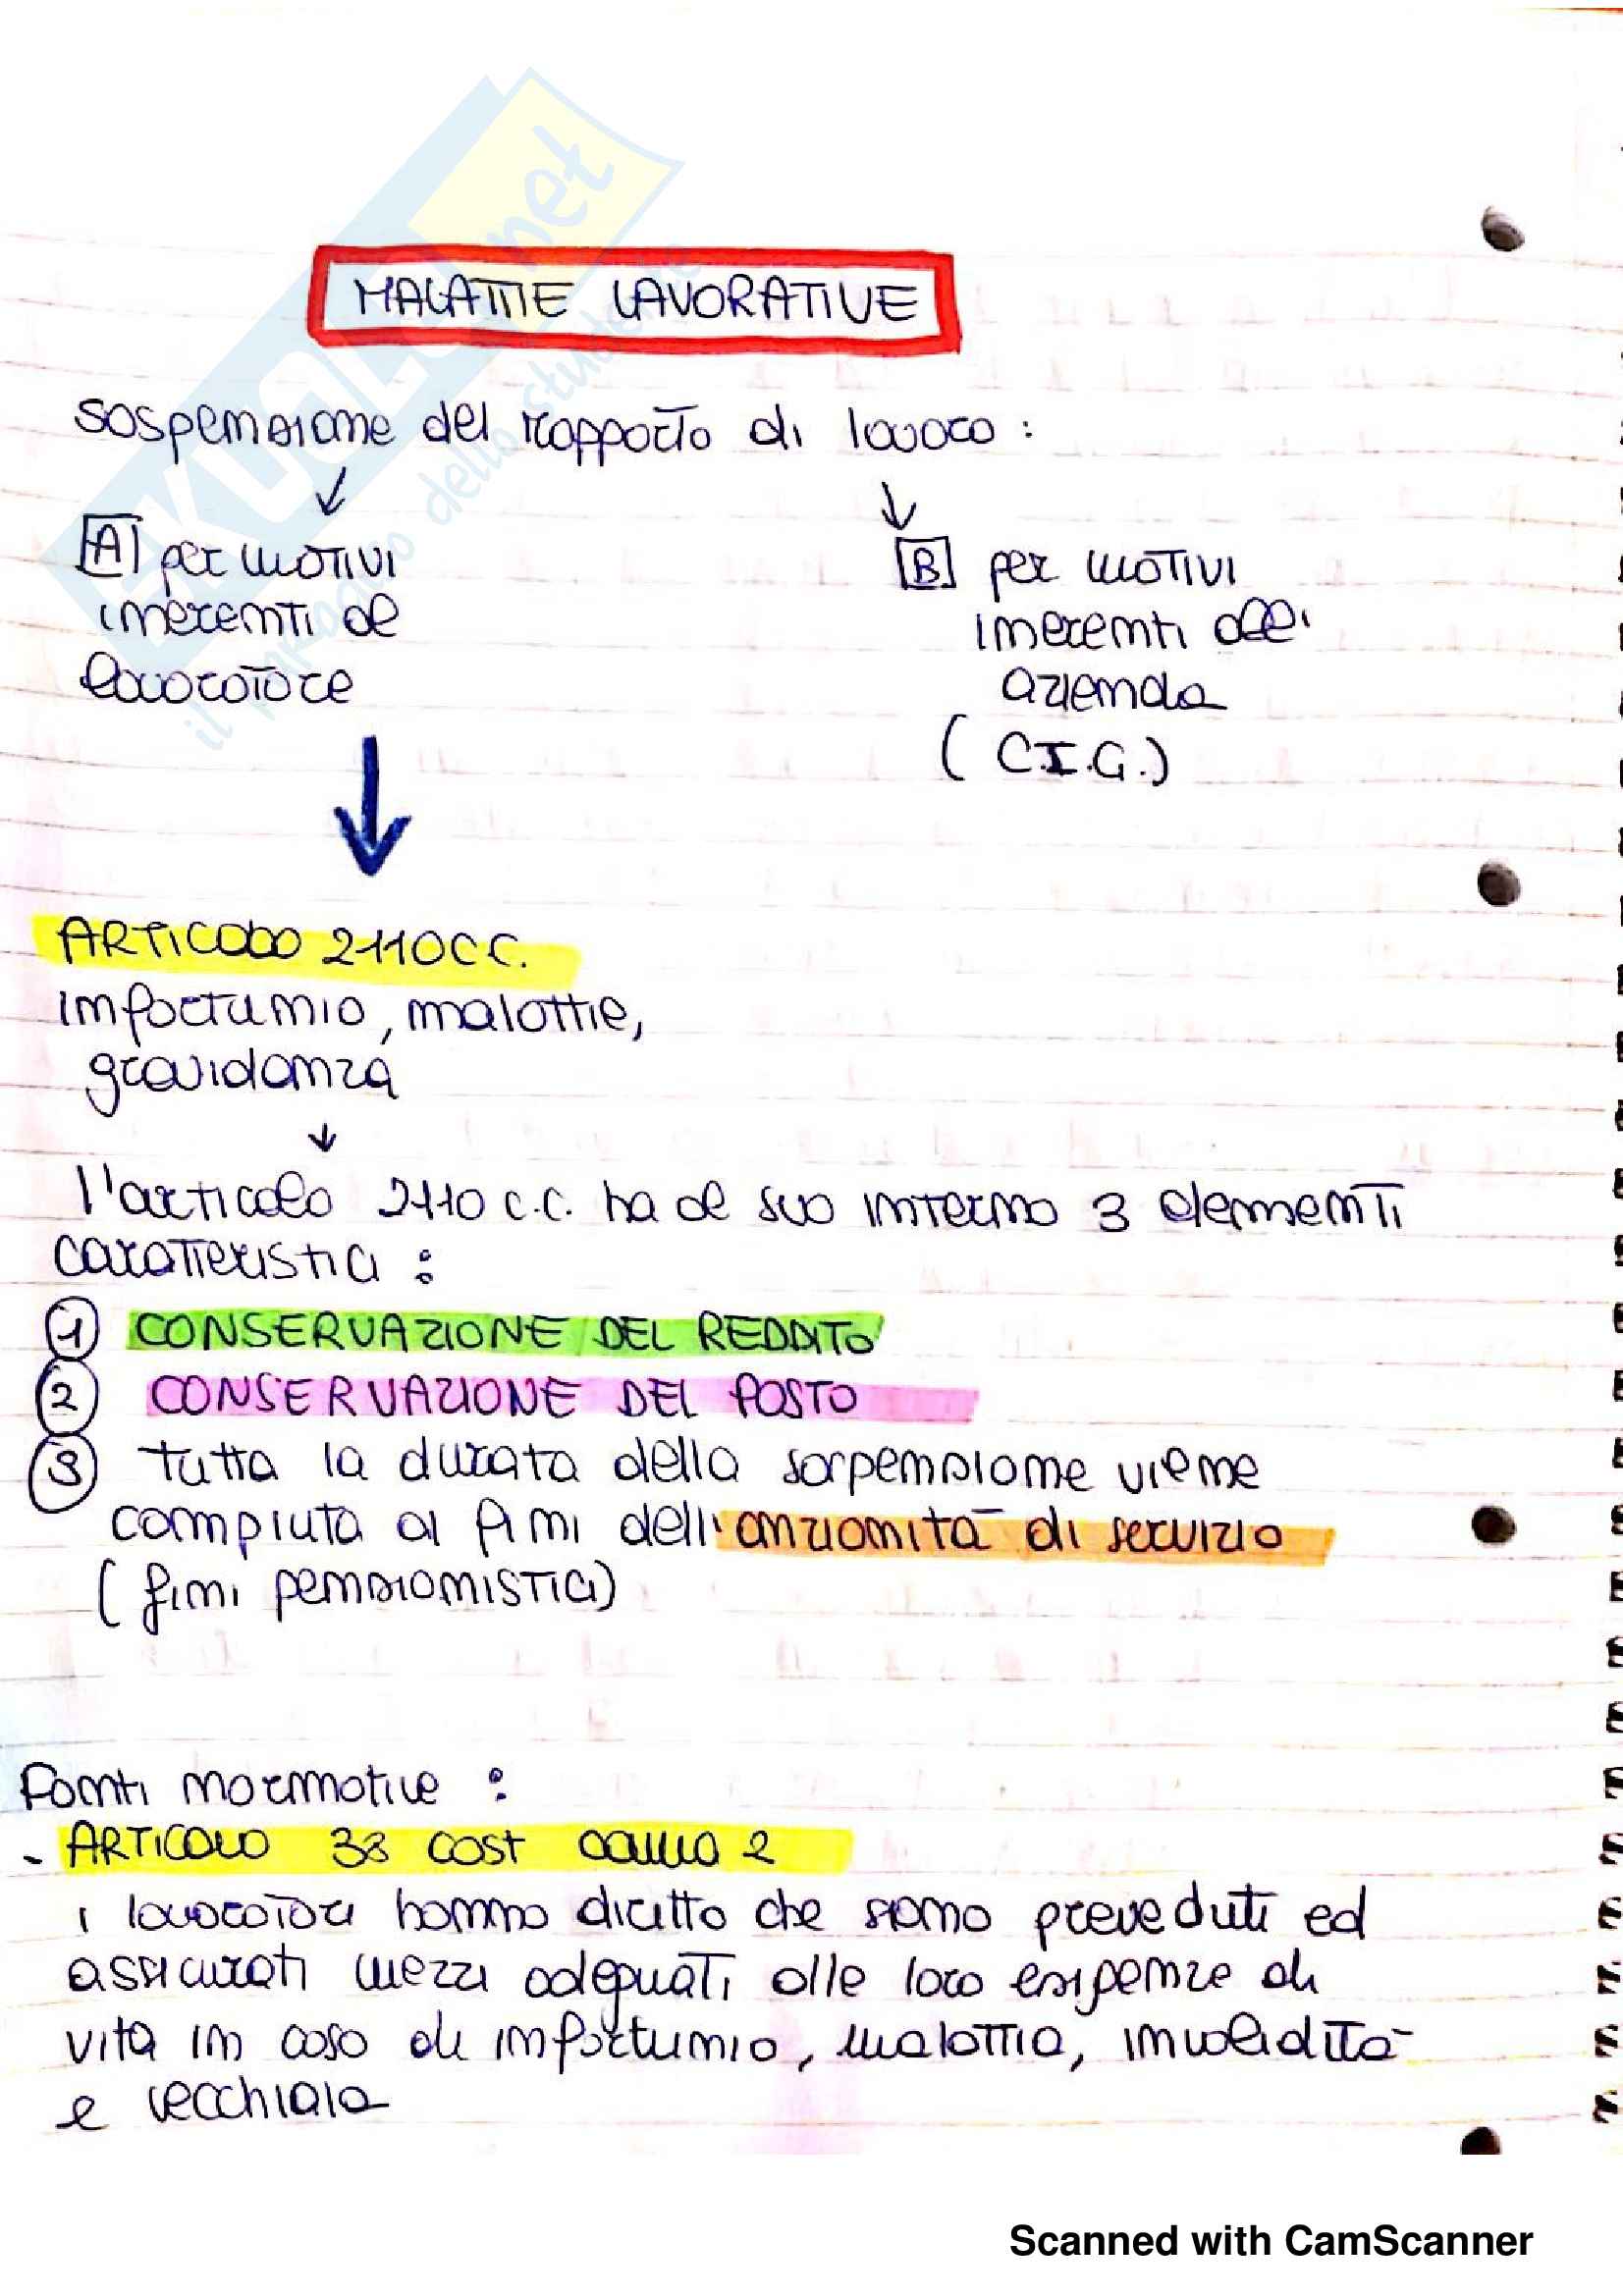 SKUOLA.net
il paradiso dello studente
MALATTIE LAVORATIVE
sospensione del rapporto di lavoro :
↓ ↓
A per motivi
inerenti al
lavoratore
B per motivi
inerenti all'
azienda
( C.I.G.)
↓
ARTICOLO 2110 C.C.
infortunio, malattie,
gravidanza
↓
l'articolo 2110 c.c. ha al suo interno 3 elementi
caratteristici :
1 CONSERVAZIONE DEL REDDITO
2 CONSERVAZIONE DEL POSTO
3 tutta la durata della sospensione viene
compiuta ai fini dell'anzianità di servizio
( fini pensionistici)
Fonti normative :
- ARTICOLO 38 COST comma 2
i lavoratori hanno diritto che siano preveduti ed
assicurati mezzi adeguati alle loro esigenze di
vita in caso di infortunio, malattia, invalidità
e vecchiaia
Scanned with CamScanner